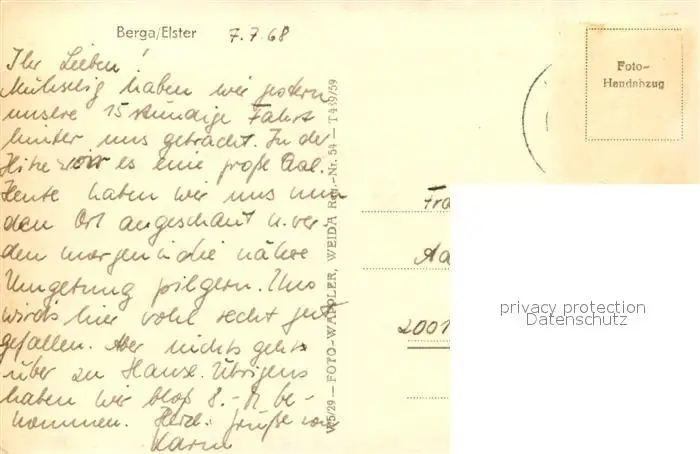 Berga/Elster 7.7.68
Ihr Lieben!
Mühselig haben wir gestern
unsere 15 stündige Fahrt
hinter uns gebracht. In der
Hitze war es eine große Qual.
Heute haben wir uns nun
den Ort angeschaut u. wer-
den morgen in die nähere
Umgebung pilgern. Uns
wird's hier wohl recht gut
gefallen. Aber nichts geht
über zu Hause. Übrigens
haben wir bloß 8.- M be-
kommen. Herzl. Grüße von
Karin
W 5/29 — FOTO-WAPPLER, WEIDA Reg.-Nr. 54 — T 439/59
Foto-
Handabzug
Fra
2001
privacy protection
Datenschutz